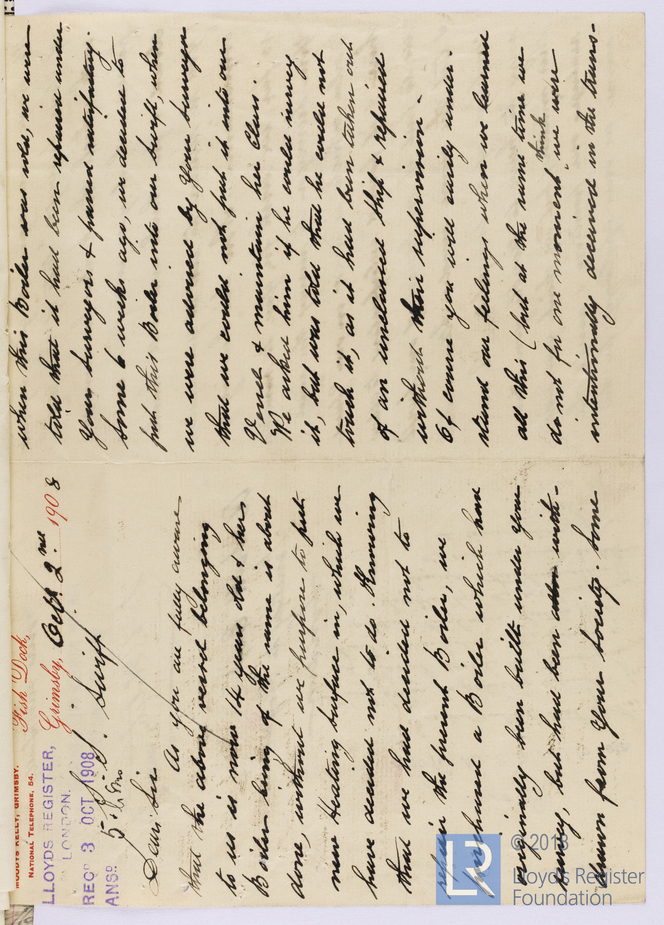 MOODYS KELLY, GRIMSBY.
NATIONAL TELEPHONE, 54.
Fish Dock,
Grimsby, Oct. 2nd 1908
LLOYDS REGISTER,
LONDON.
REC'D 3 OCT 1908
ANSD.
S.S. Swift
Dear Sir
As you are fully aware
that the above vessel belonging
to us is now 14 years old & her
Boiler being of the same is about
done, without we purpose to put
new Heating surface in, which we
have decided not to do. Knowing
that we had decided not to
repair the present Boiler, we
purchased a Boiler which had
originally been built under your
survey, but had been with-
drawn from your Society. Some
when this Boiler was sold, we were
told that it had been repaired under
your surveyors & passed satisfactory.
Some 6 weeks ago, we decided to
put this Boiler into our Swift, when
we were advised by your surveyor
that we could not put it into our
Vessel & maintain her Class.
We asked him if he would survey
it, but was told that he could not
touch it, as it had been taken out
of an unclassed ship & repaired
without their supervision.
Of course you will easily under-
stand our feelings when we learned
all this (but at the same time we
do not for one moment think we were
intentionally deceived in the trans-
© 2018
Lloyd's Register
Foundation